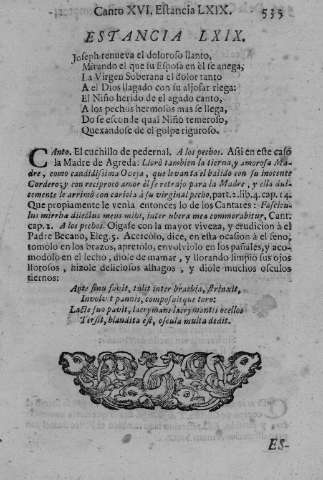 Canto XVI. Estancia LXIX. 535
ESTANCIA LXIX.
Joseph renueva el doloroso llanto,
Mirando el que su Esposa en èl se anega,
La Virgen Soberana el dolor tanto
A el Dios llagado con su aljofar riega:
El Niño herido de el agudo canto,
A los pechos hermosos mas se llega,
Do se esconde qual Niño temeroso,
Quexandose de el golpe riguroso.
CAnto. El cuchillo de pedernal. A los pechos. Assi en este caso
la Madre de Agreda: Llorò tambien la tierna, y amorosa Ma-
dre, como candidissima Oveja, que levanta el balido con su inocente
Cordero; y con reciproco amor èl se retraxo para la Madre, y ella dul-
cemente le arrimò con caricia à su virginal pecho, part. 2. lib. 4. cap. 14.
Que propiamente le venia entonces lo de los Cantares: Fascicu-
lus mirrha dilectus meus mihi, inter ubera mea commorabitur, Cant.
cap. 1. A los pechos. Oigase con la mayor viveza, y erudicion à el
Padre Becano, Eleg. 5. Acetòlo, dice, en esta ocasion à el seno,
tomolo en los brazos, apretolo, envolviolo en los pañales, y aco-
modolo en el lecho, diole de mamar, y llorando limpiò sus ojos
llorosos, hizole deliciosos alhagos, y diole muchos osculos
tiernos:
Apte sinu fovit, tulit inter brachia, strinxit,
Involvit pannis, composuitque toro:
Lacte suo pavit, lacrymans lacrymantis ocellos
Tersit, blandita est, oscula multa dedit.
ES-